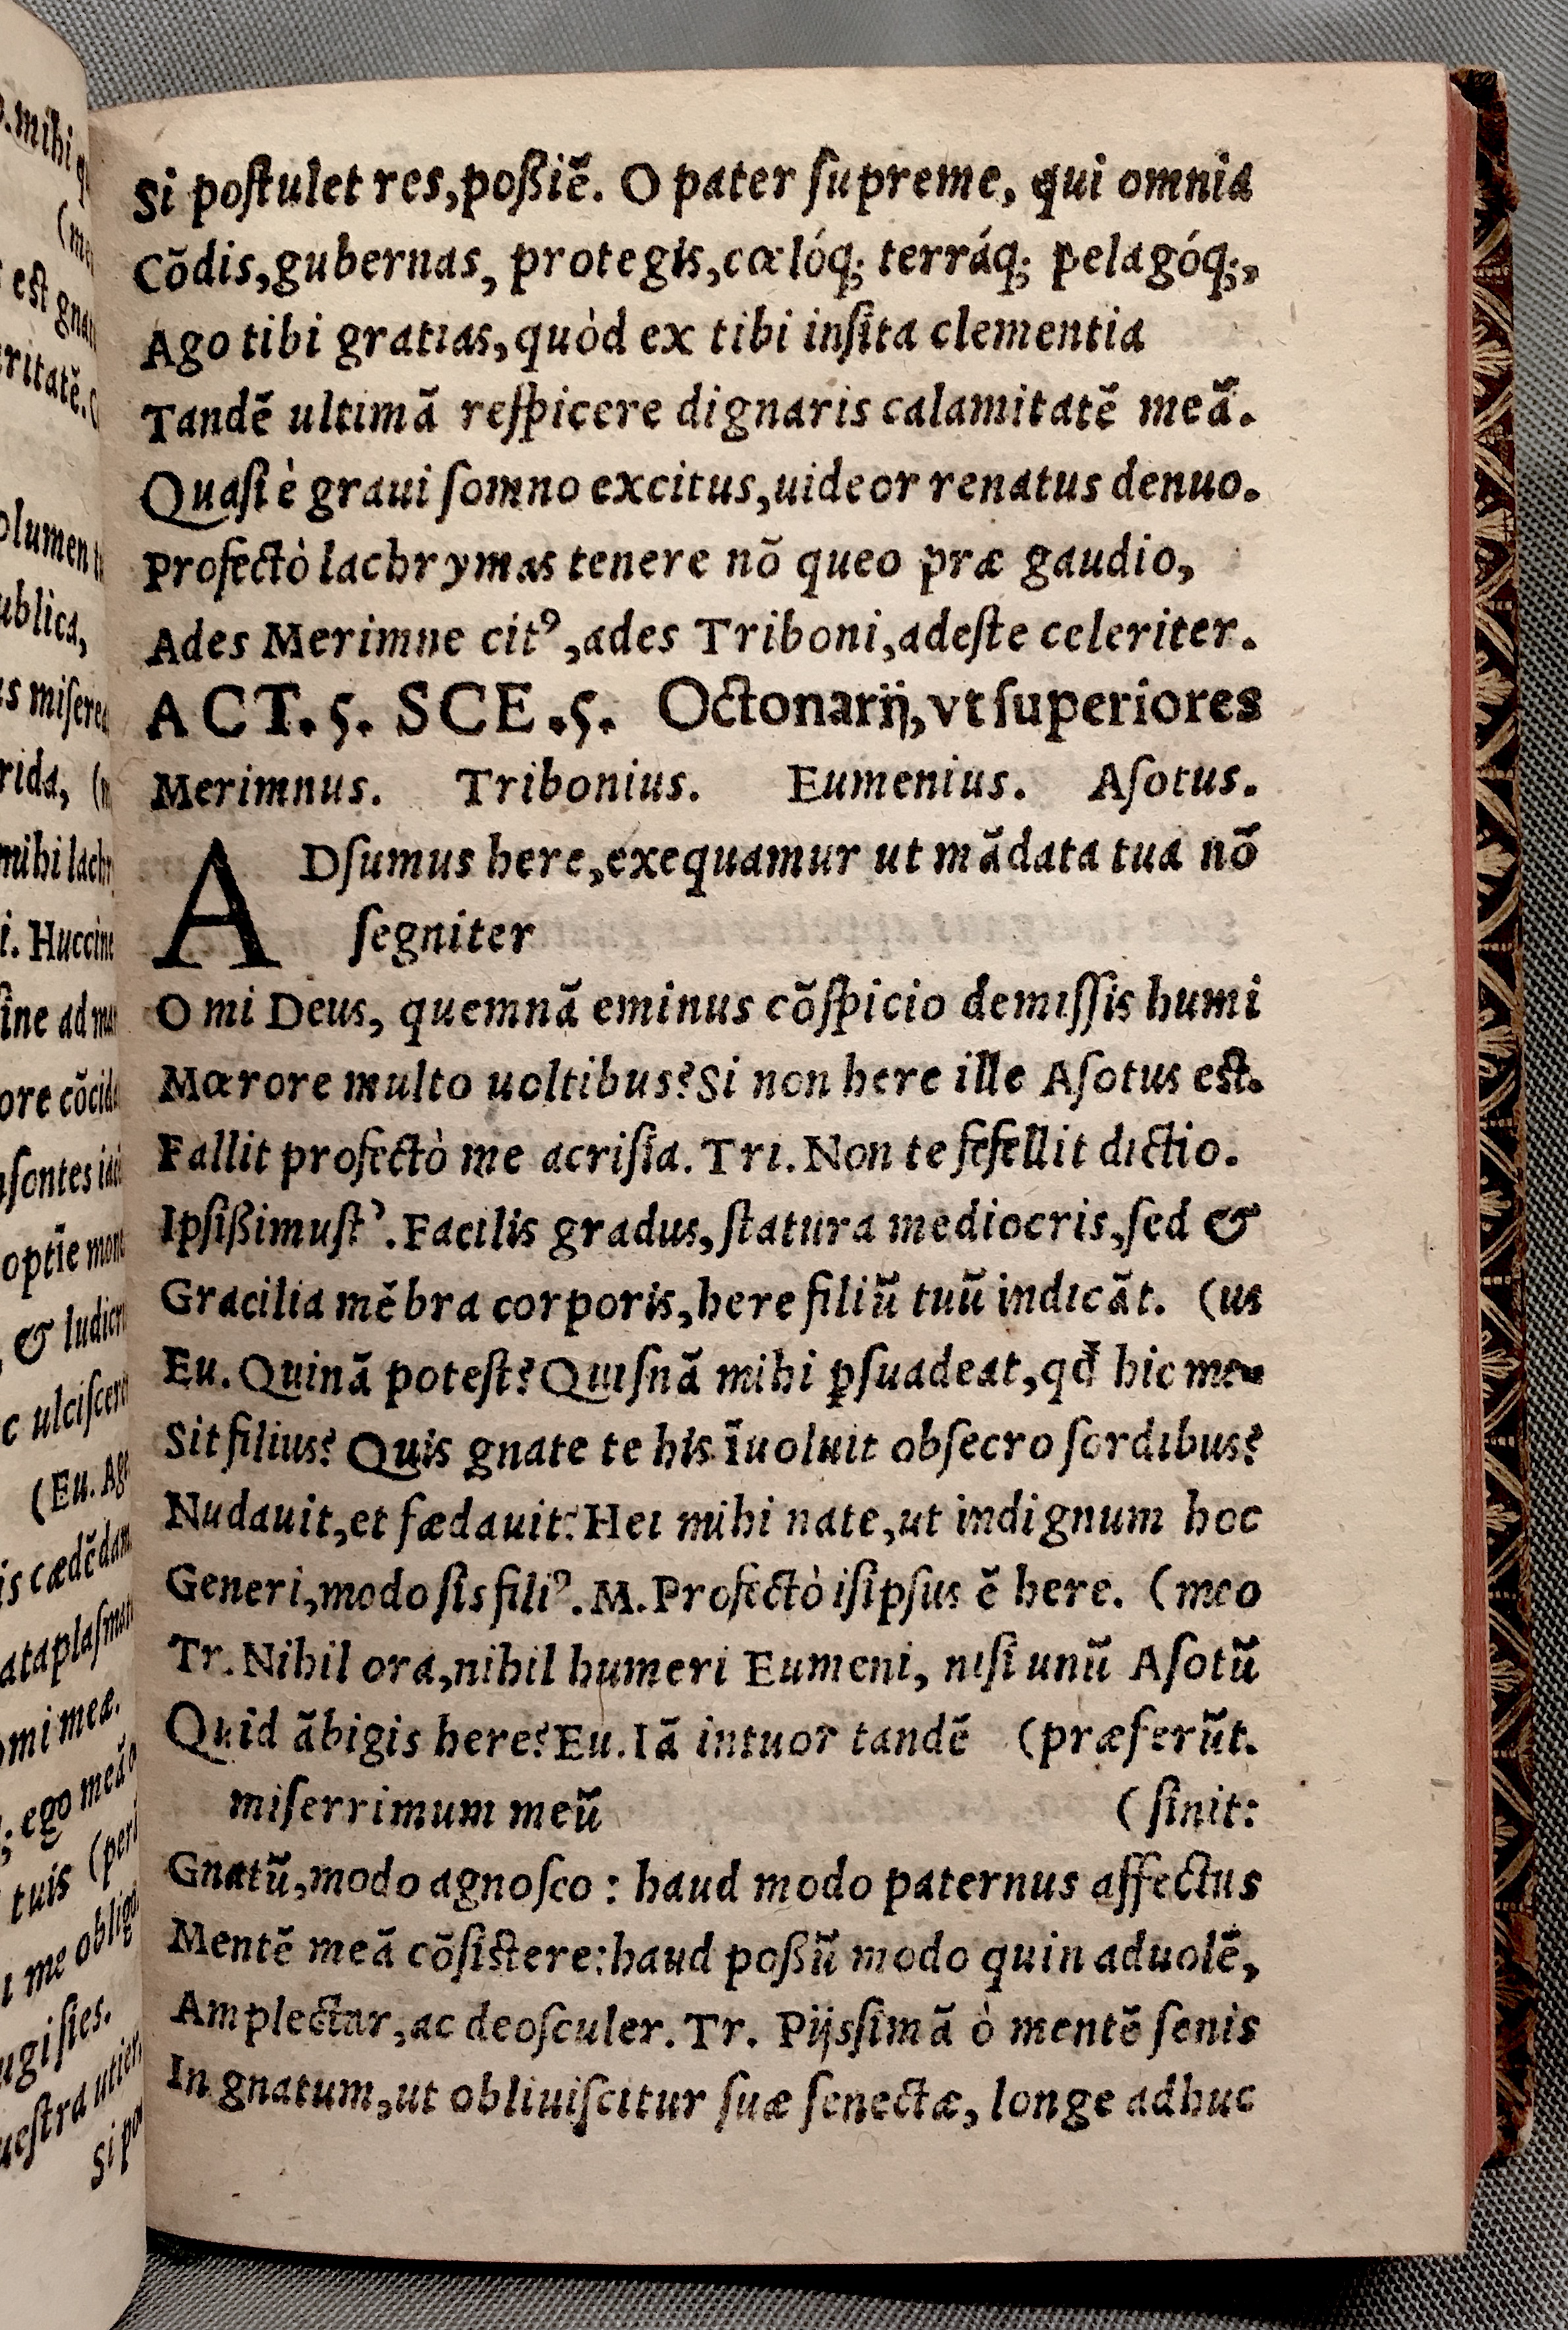 Si poſtulet res,poßiẽ. O pater ſupreme, qui omnia
Cõdis,gubernas, protegis,cœlóq; terráq; pelagóq;,
Ago tibi gratias,quòd ex tibi inſita clementia
Tandẽ ultimã reſpicere dignaris calamitatẽ meã.
Quaſi è graui ſomno excitus,uideor renatus denuo.
Profectò lachrymas tenere nõ queo præ gaudio,
Ades Merimne citꝰ,ades Triboni,adeſte celeriter.
ACT.5. SCE.5. Octonarij,vt ſuperiores
Merimnus. Tribonius. Eumenius. Aſotus.
ADſumus here,exequamur ut mãdata tua nõ
ſegniter
O mi Deus, quemnã eminus cõſpicio demiſſis humi
Mœrore multo uoltibus? Si non here ille Aſotus est.
Fallit profectò me acriſia. Tri. Non te fefellit dictio.
Ipſißimuſtꝰ. Facilis gradus, ſtatura mediocris,ſed &
Gracilia mẽbra corporis,here filiũ tuũ indicãt. (us
Eu. Quinã poteſt? Quiſnã mihi ꝑſuadeat,qđ hic me-
Sit filius? Quis gnate te his ĩuoluit obſecro ſordibus?
Nudauit,et fædauit? Hei mihi nate,ut indignum hoc
Generi,modo ſis filiꝰ. M. Profectò iſipſus ẽ here. (meo
Tr. Nihil ora,nihil humeri Eumeni, niſi unũ Aſotũ
Quid ãbigis here? Eu. Iã intuor tandẽ (præferũt.
miſerrimum meũ (ſinit:
Gnatũ,modo agnoſco : haud modo paternus affectus
Mentẽ meã cõſiſtere:haud poßũ modo quin aduolẽ,
Amplectar,ac deoſculer. Tr. Pijsſimã ò mentẽ ſenis
In gnatum,ut obliuiſcitur ſuæ ſenectæ, longe adhuc